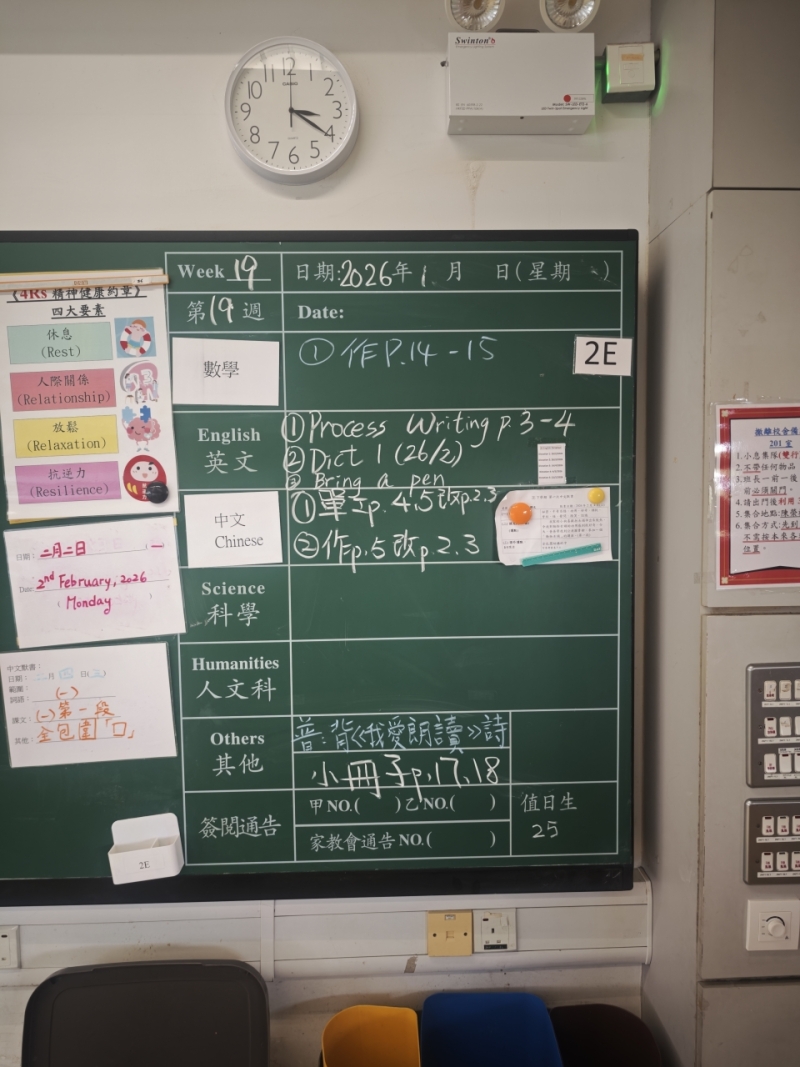 Swinton
12
11
1
10
2
9
3
8
4
7
5
6
Week 19
日期:2026年1月 日(星期 )
第19週
Date:
《4Rs 精神健康約章》
四大要素
休息
(Rest)
人際關係
(Relationship)
放鬆
(Relaxation)
抗逆力
(Resilience)
數學
① 作 P.14-15
2E
English
英文
① Process Writing p.3-4
② Dict 1 (26/2)
③ Bring a pen
中文
Chinese
① 單立p.4,5改p.2.3
② 作p.5改p.2.3
日期: 二月二日 一
Date: 2nd February, 2026
( Monday
中文默書:
日期: 月 日( )
範圍:
詞語: (一)
課文: (一)第一段
其他: 全包圍「囗」
Science
科學
Humanities
人文科
Others
其他
普:背《我愛朗讀》詩
小冊子p.17,18
簽閱通告
甲NO.( )乙NO.( )
家教會通告NO.( )
值日生
25
2E
201 室
1.小息集隊(雙行
2.不帶任何物品
3.班長一前一後
前必須關門。
4.請出門後利用
5.集合地點:陳榮
6.集合方式:先到
不需按本來各
位置。